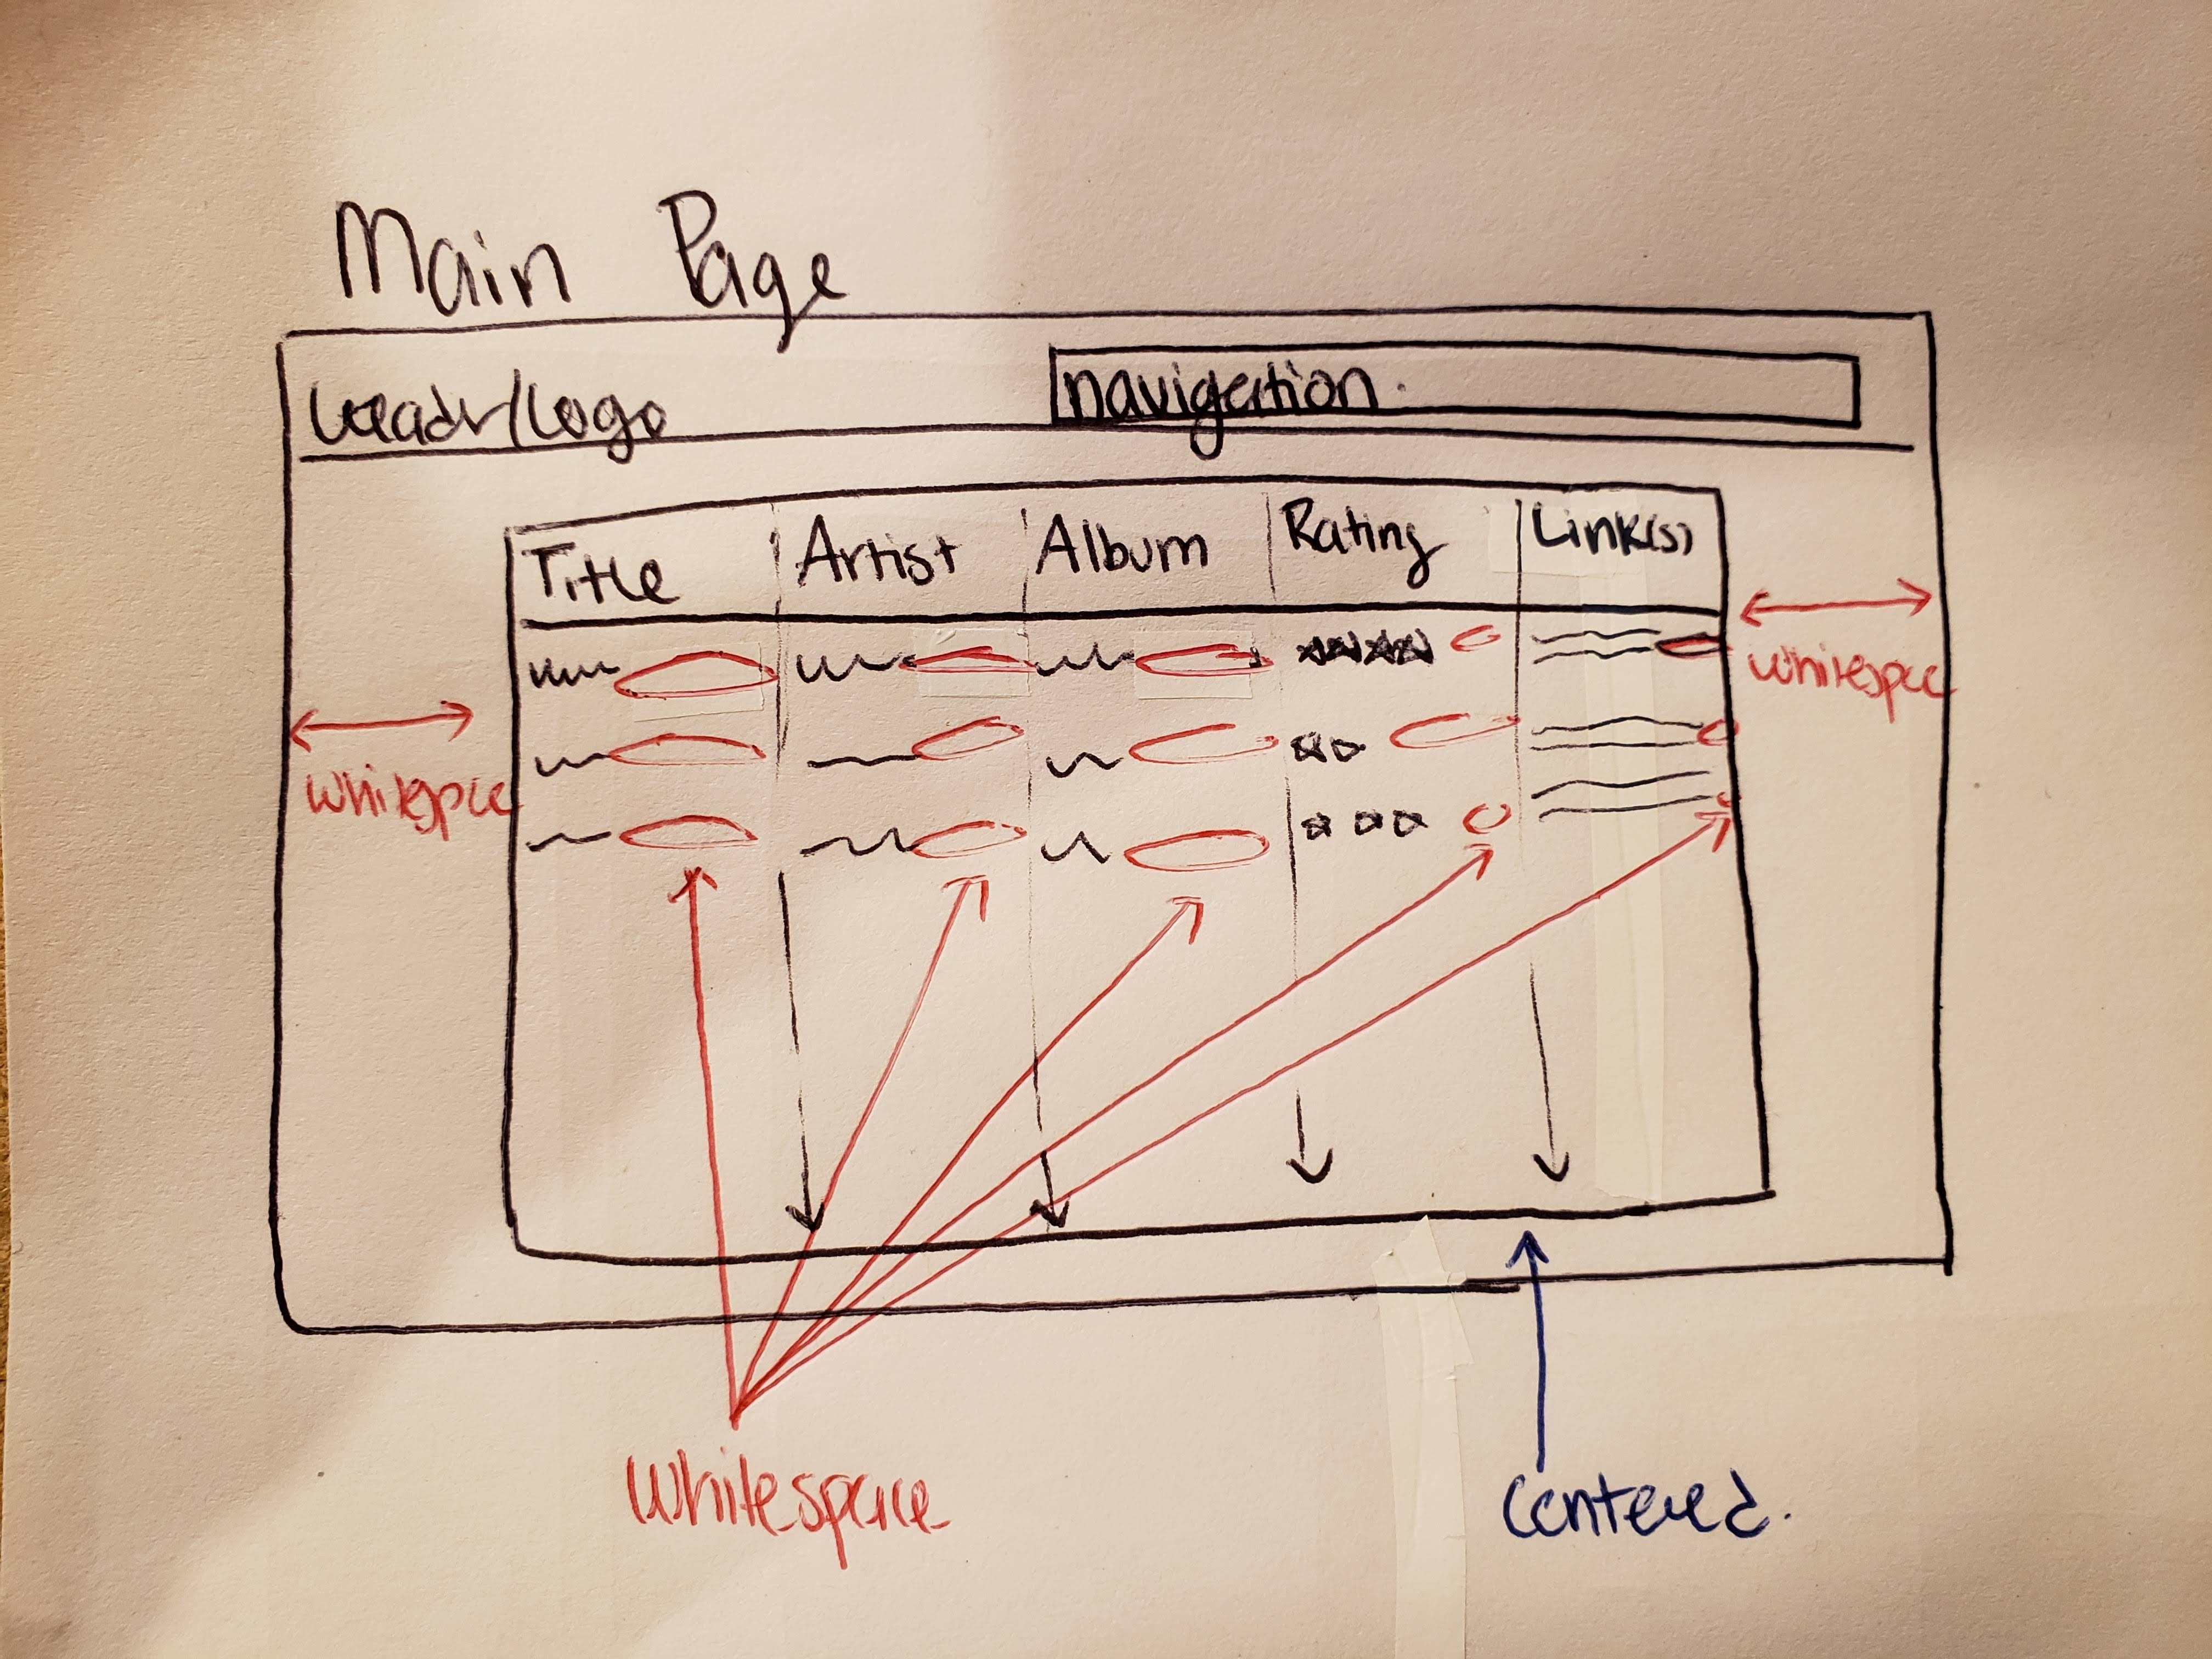 Main Page
Header/Logo
navigation.
Title Artist Album Rating Link(s)
whitespace
whitespace
whitespace
centered.